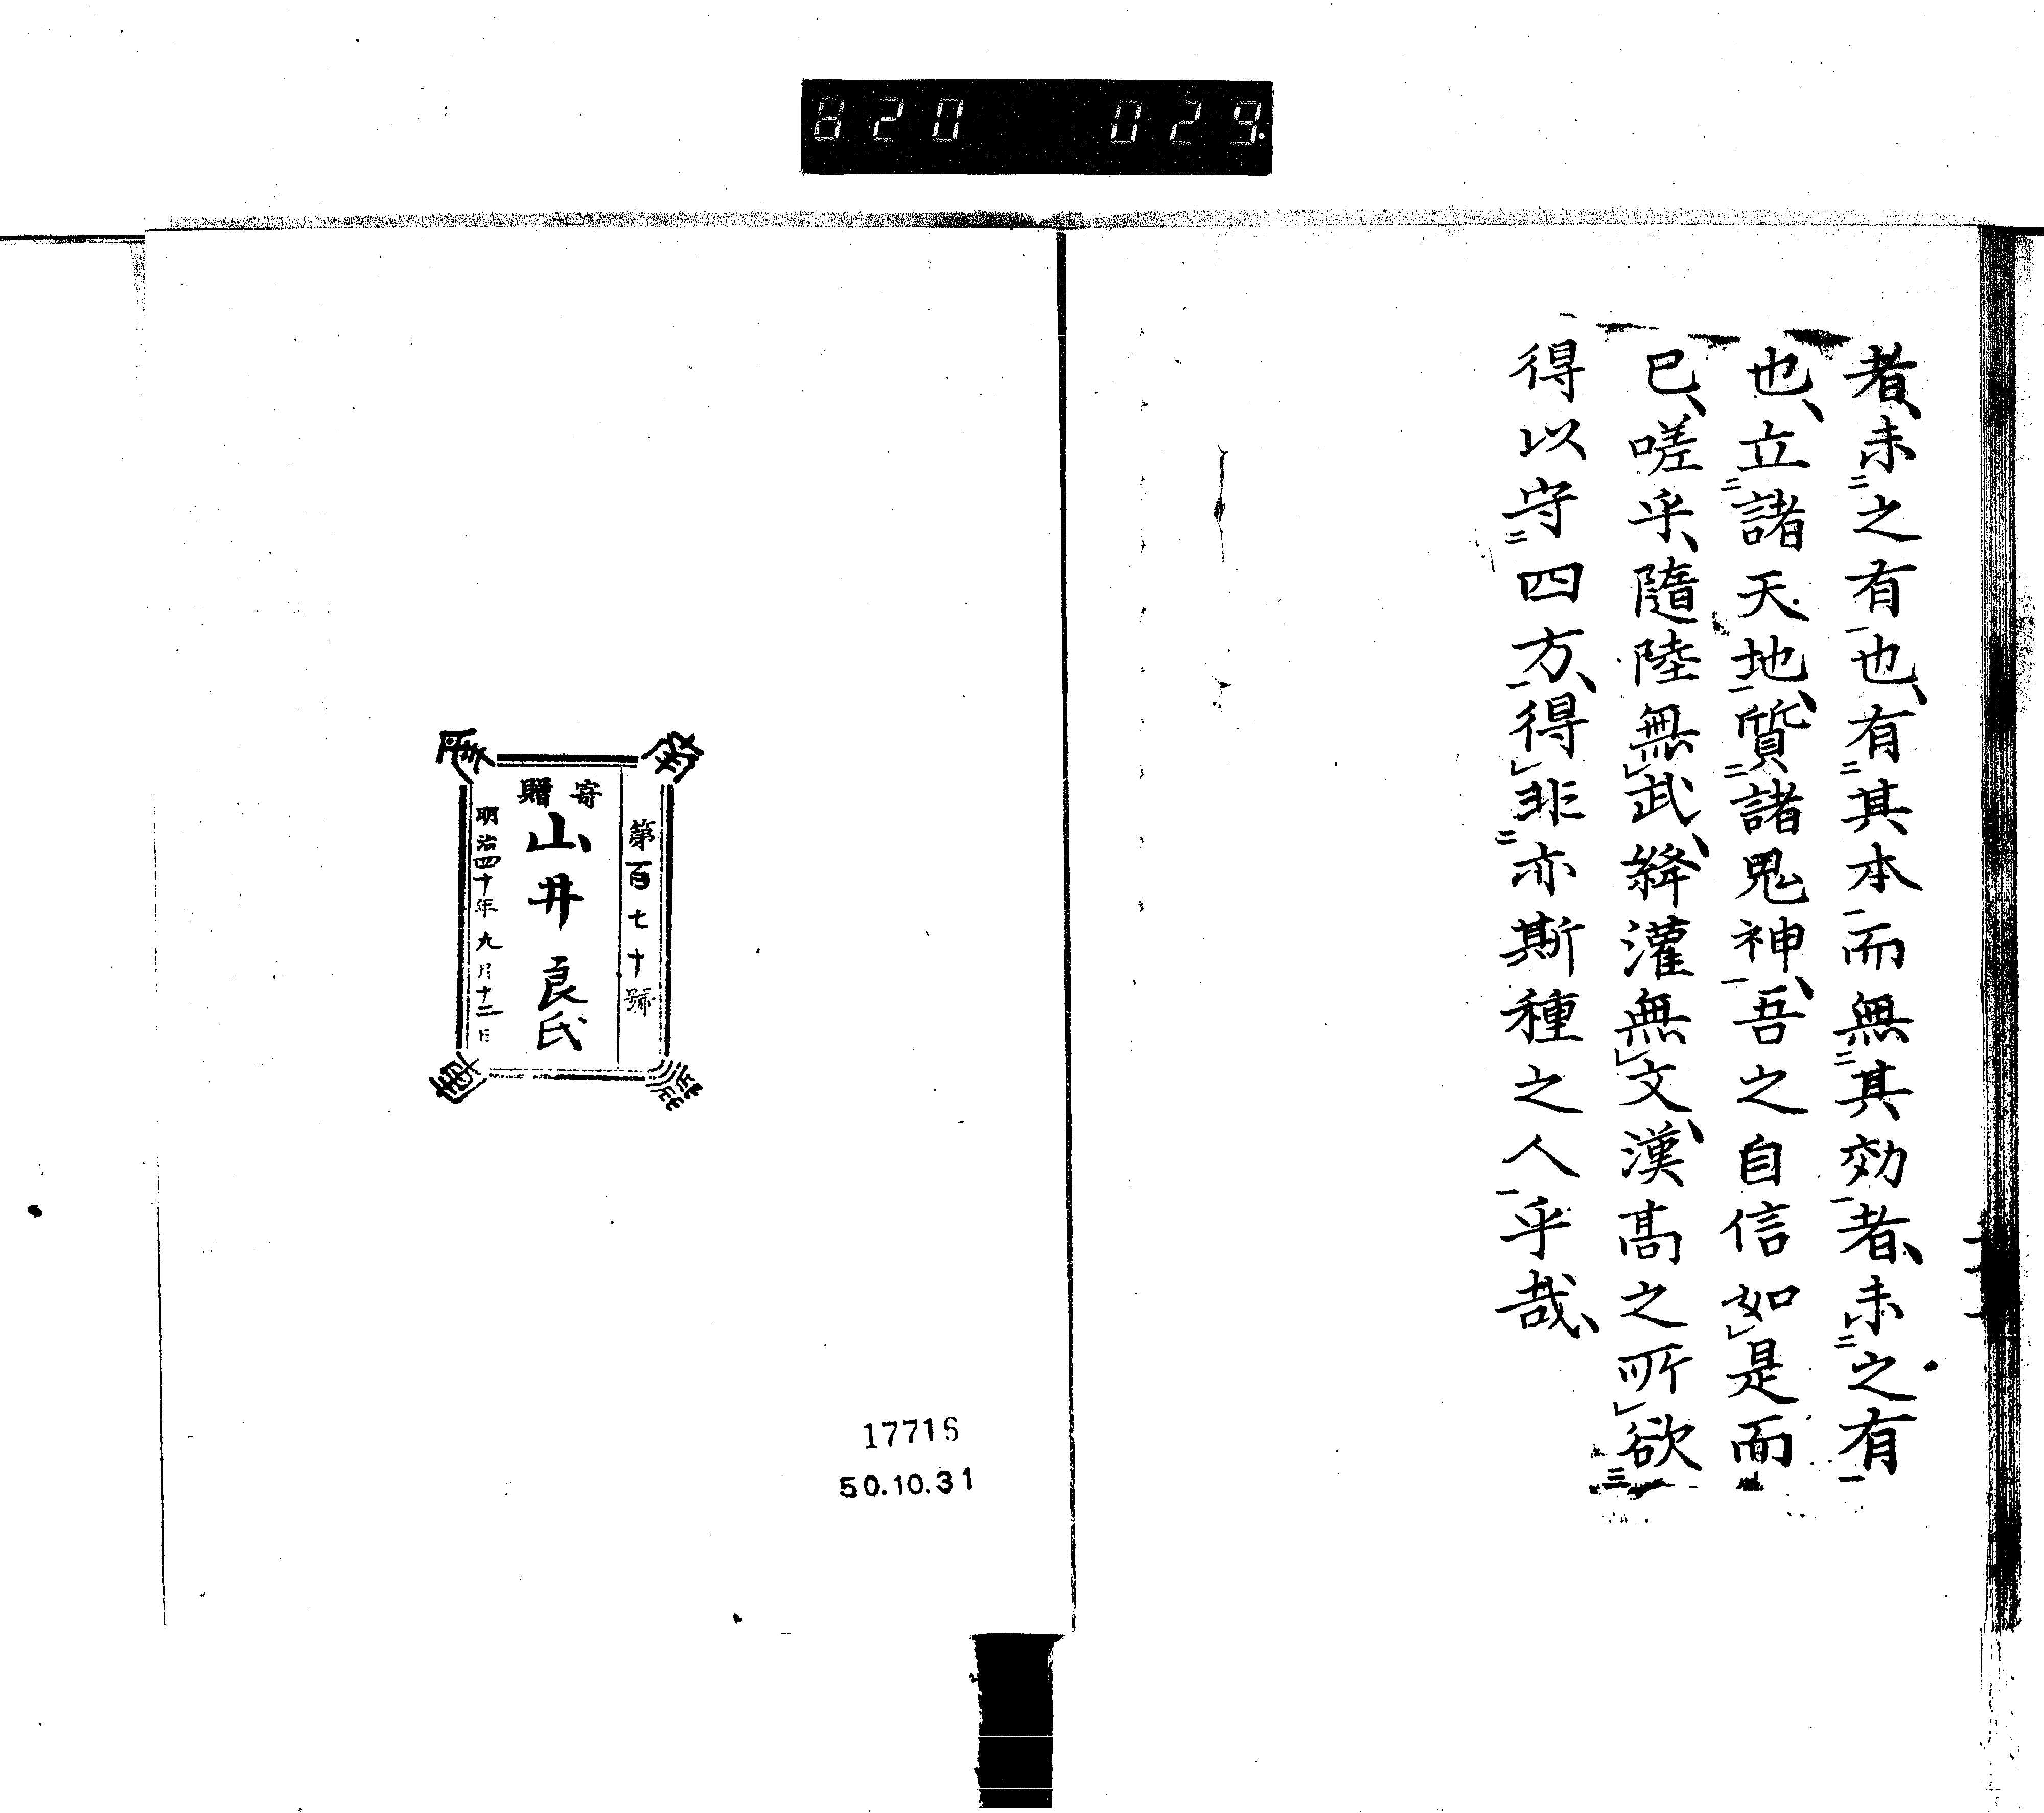 820 029
者、未㆓之有㆒也、有㆓其本㆒而無㆓其効㆒者、未㆓之有㆒
也、立㆓諸天地㆒、質㆓諸鬼神㆒、吾之自信如㆑是而
已、嗟乎、隨陸無㆑武、絳灌無㆑文、漢高之所㆑欲㆔
得以守㆓四方㆒、得㆑非㆓亦斯種之人㆒乎哉、
第百七十號
寄贈
山井良氏
明治四十年九月十二日
17716
50.10.31